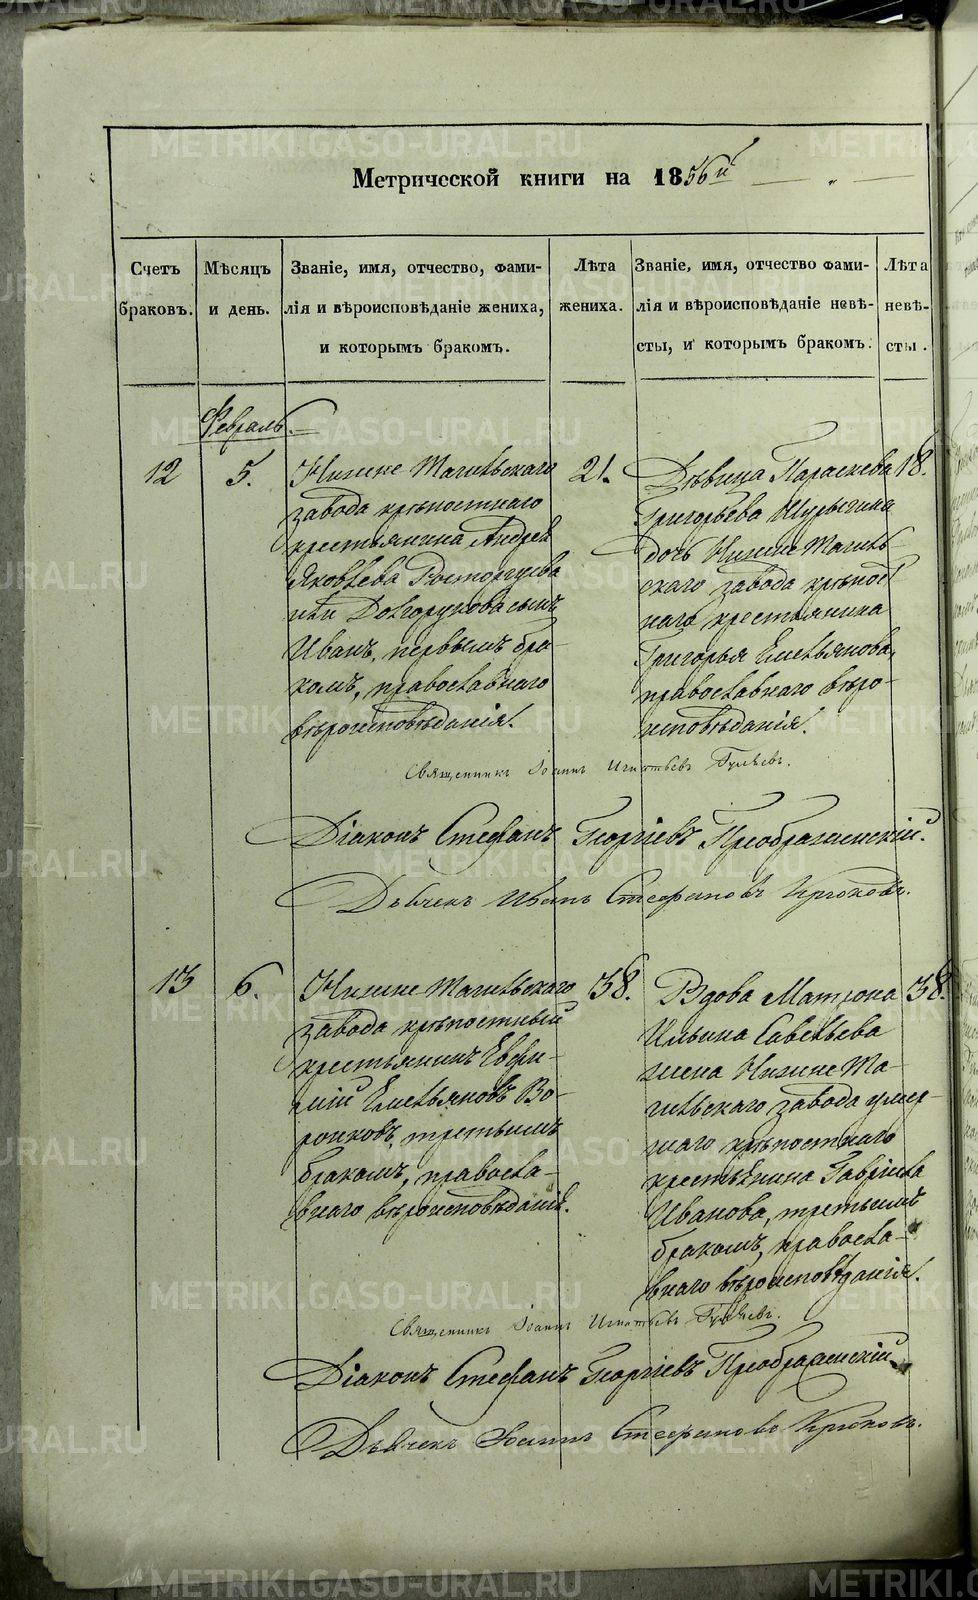 Метрической книги на 1856й
Счетъ браковъ.
Мѣсяцъ и день.
Званіе, имя, отчество, фами-
лія и вѣроисповѣданіе жениха,
и которымъ бракомъ.
Лѣта жениха.
Званіе, имя, отчество фами-
лія и вѣроисповѣданіе невѣ-
сты, и которымъ бракомъ.
Лѣта невѣ-
сты.
Февраль.
12
5.
Нижне Тагильскаго
завода крѣпостнаго
крестьянина Андрея
Яковлева Расторгуева
или Долгорукова сынъ
Иванъ, первымъ бра-
комъ, православнаго
вѣроисповѣданія.
21.
Дѣвица Параскева
Григорьева Шурыгина
дочь Нижне Тагиль-
скаго завода крѣпост
наго крестьянина
Григорья Емельянова,
православнаго вѣро-
исповѣданія.
18.
Священникъ Іоаннъ Игнатьевъ
Діаконъ Стефанъ Георгіевъ Преображенскій.
Дьячекъ Иванъ Стефановъ Крюковъ.
13
6.
Нижне Тагильскаго
завода крѣпостный
крестьянинъ Евфи-
мій Емельяновъ Во-
ронковъ, третьимъ
бракомъ, правосла-
внаго вѣроисповѣданія.
38.
Вдова Матрона
Ильина Савельева
жена Нижне Та-
гильскаго завода умер-
шаго крѣпостнаго
крестьянина Гавріила
Иванова, третьимъ
бракомъ, правосла-
внаго вѣроисповѣданія.
38.
Священникъ Іоаннъ Игнатьевъ
Діаконъ Стефанъ Георгіевъ Преображенскій
Дьячекъ Іоаннъ Стефановъ Крюковъ.
METRIKI.GASO-URAL.RU